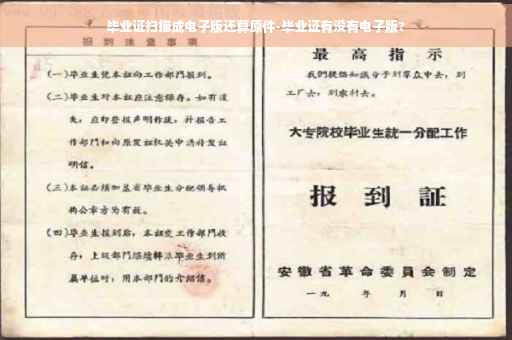 毕业证扫描成电子版还算原件-毕业证有没有电子版?
报到注意事项
(一)毕业生凭本证向工作部门报到。
(二)毕业生对本证应注意保存。如有遗
失,应即登报声明作废,并报告工
作部门和向原发证机关申请补发证
明信。
(三)本证必须加盖省毕业生分配领导机
构公章方为有效。
(四)毕业生报到后,本证交工作部门收
存;上级部门继续转派毕业生到所
属单位时,用本部门的介绍信。
最高指示
我们提倡知识分子到群众中去,到
工厂去,到农村去。
大专院校毕业生统一分配工作
报到証
安徽省革命委員会制定
一九 年 月 日